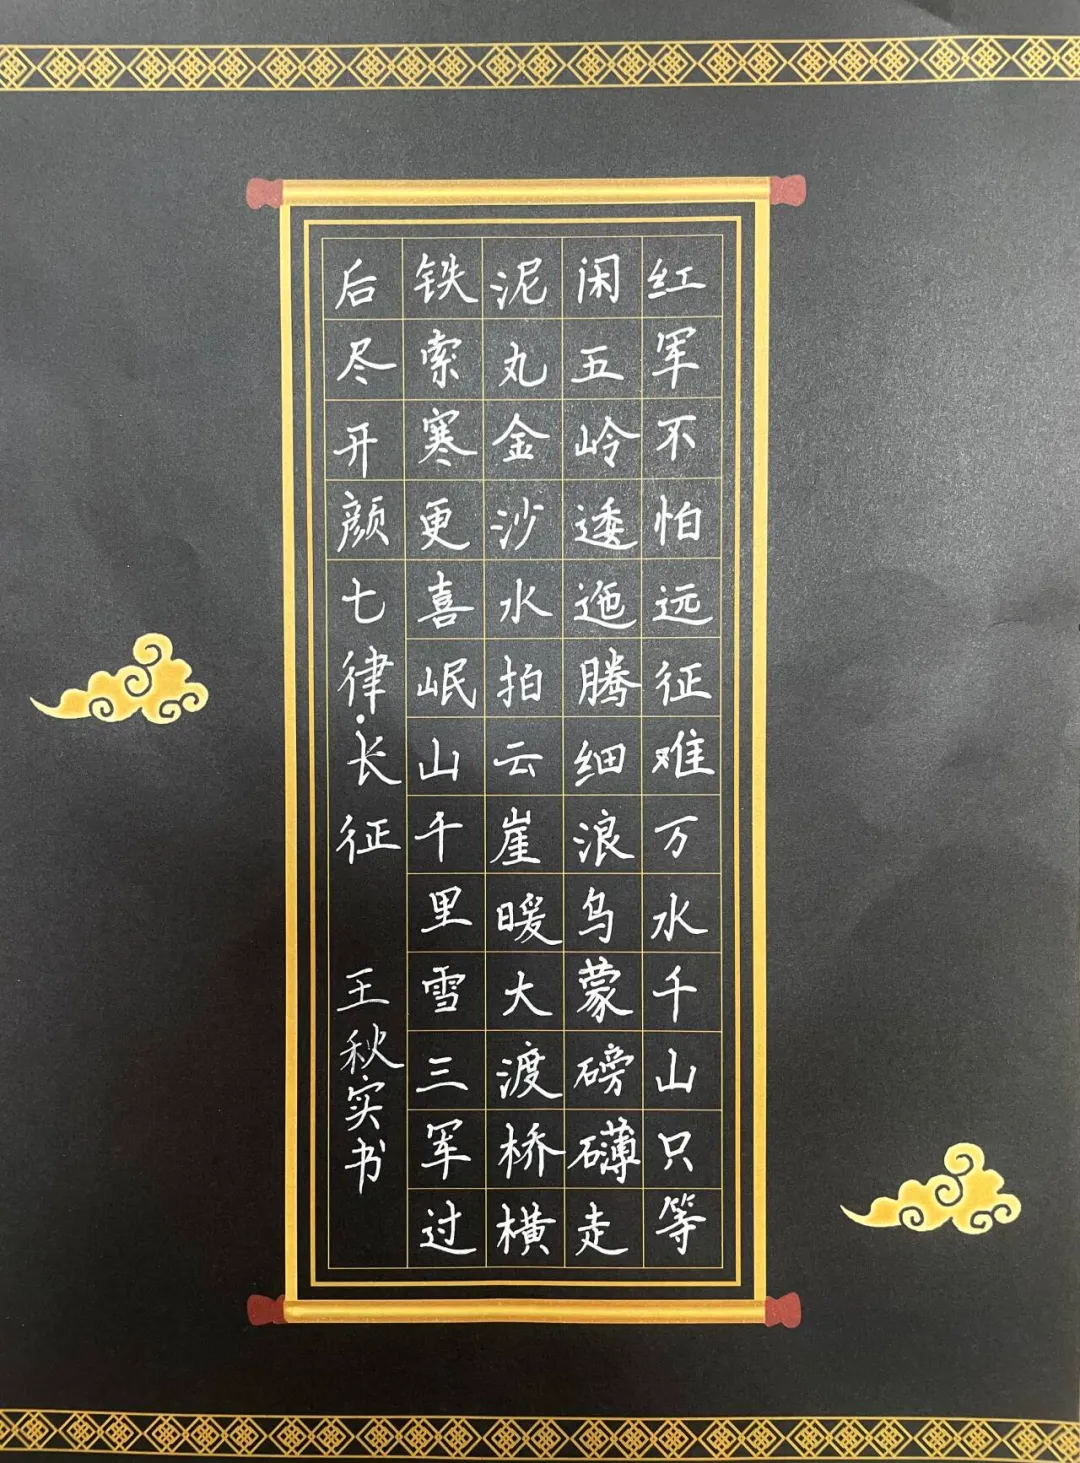 红军不怕远征难万水千山只等
闲五岭逶迤腾细浪乌蒙磅礴走
泥丸金沙水拍云崖暖大渡桥横
铁索寒更喜岷山千里雪三军过
后尽开颜七律·长征 王秋实书